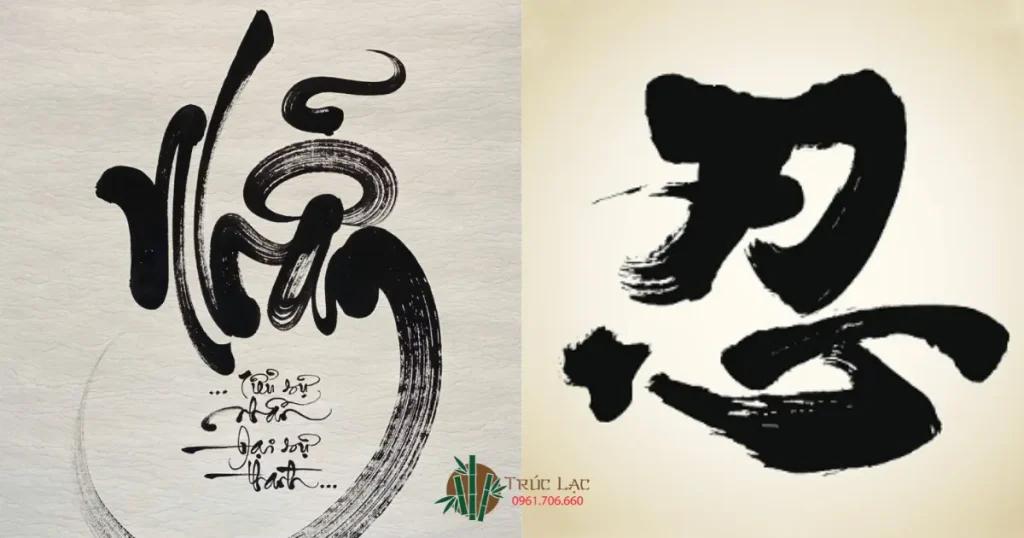 Nhẫn
... Tiểu sự
nhẫn
Đại sự
thành ...
忍
TRÚC LẠC
0961.706.660